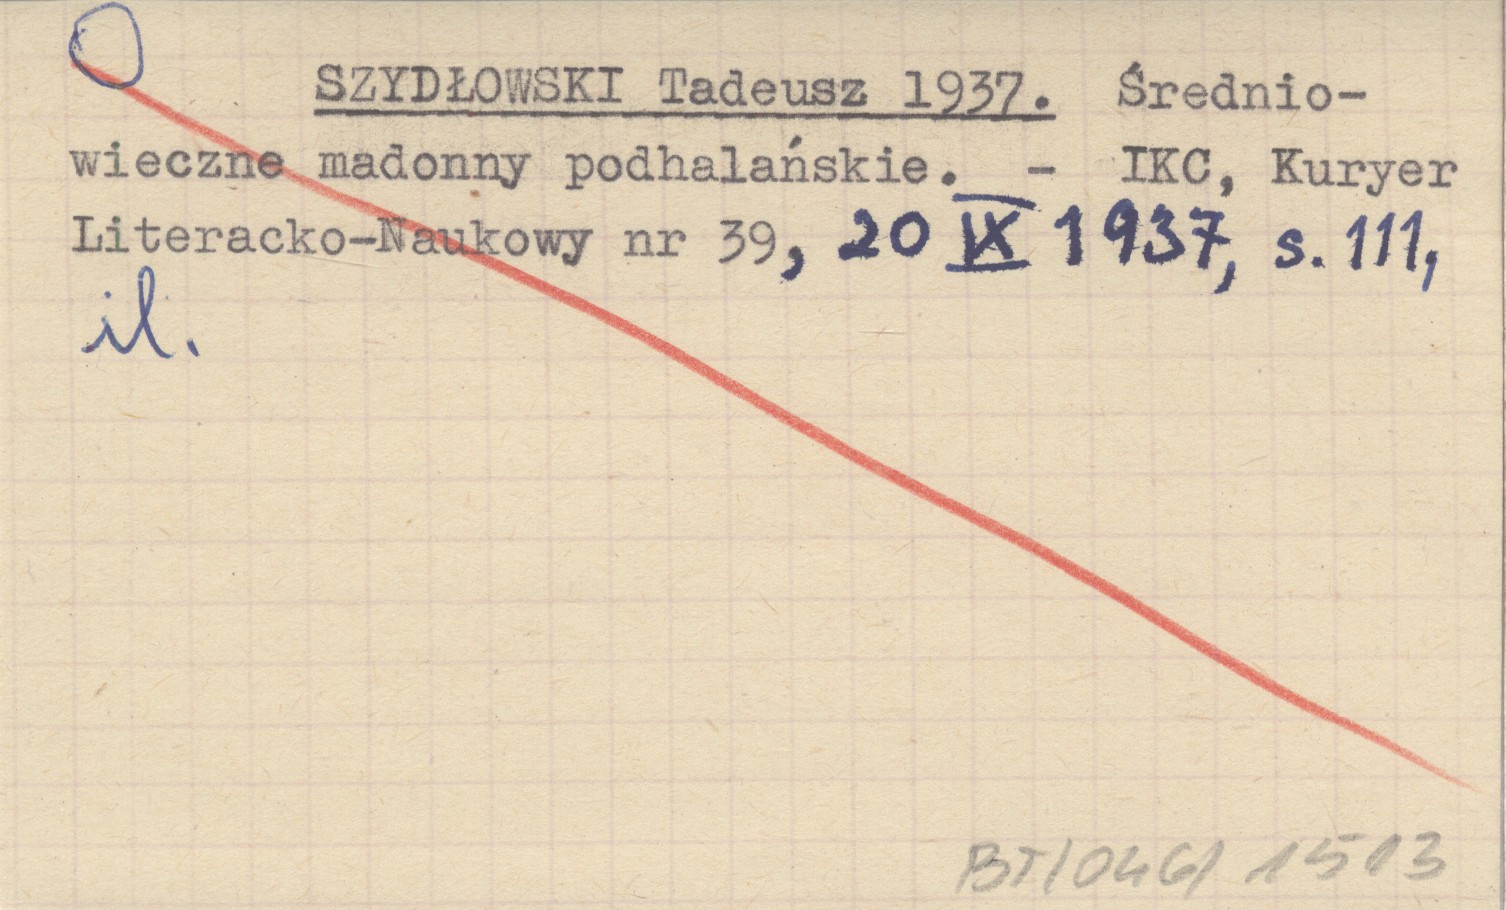 SZYDŁOWSKI Tadeusz 1937. Średnio-
wieczne madonny podhalańskie. - IKC, Kuryer
Literacko-Naukowy nr 39, 20 IX 1937, s. 111,
il.
BT/046/ 1513